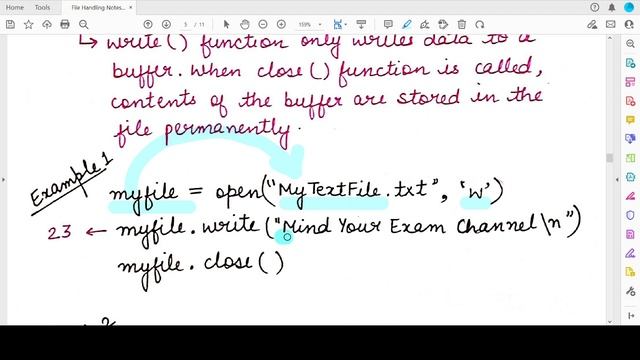 Home
Tools
File Handling Notes...
5 / 11
159%
↳ write() function only writes data to a
buffer. When close() function is called,
contents of the buffer are stored in the
file permanently.
Example 1
myfile = open("MyTextFile.txt", 'w')
23 ← myfile.write("Mind Your Exam Channel \n")
myfile.close()